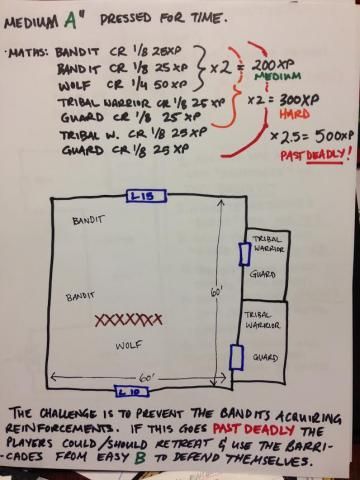 MEDIUM A" PRESSED FOR TIME.
• MATHS: BANDIT CR 1/8 25XP
BANDIT CR 1/8 25 XP
WOLF CR 1/4 50 XP
× 2 = 200XP
MEDIUM
TRIBAL WARRIOR CR 1/8 25 XP
GUARD CR 1/8 25 XP
× 2 = 300XP
HARD
TRIBAL W. CR 1/8 25 XP
GUARD CR 1/8 25 XP
× 2.5 = 500XP
PAST DEADLY!
L 15
BANDIT
TRIBAL
WARRIOR
GUARD
BANDIT
60'
TRIBAL
WARRIOR
XXXXXXX
WOLF
GUARD
60'
L 10
THE CHALLENGE IS TO PREVENT THE BANDITS ACRUIRING
REINFORCEMENTS. IF THIS GOES PAST DEADLY THE
PLAYERS COULD/SHOULD RETREAT & USE THE BARRI-
CADES FROM EASY B TO DEFEND THEMSELVES.